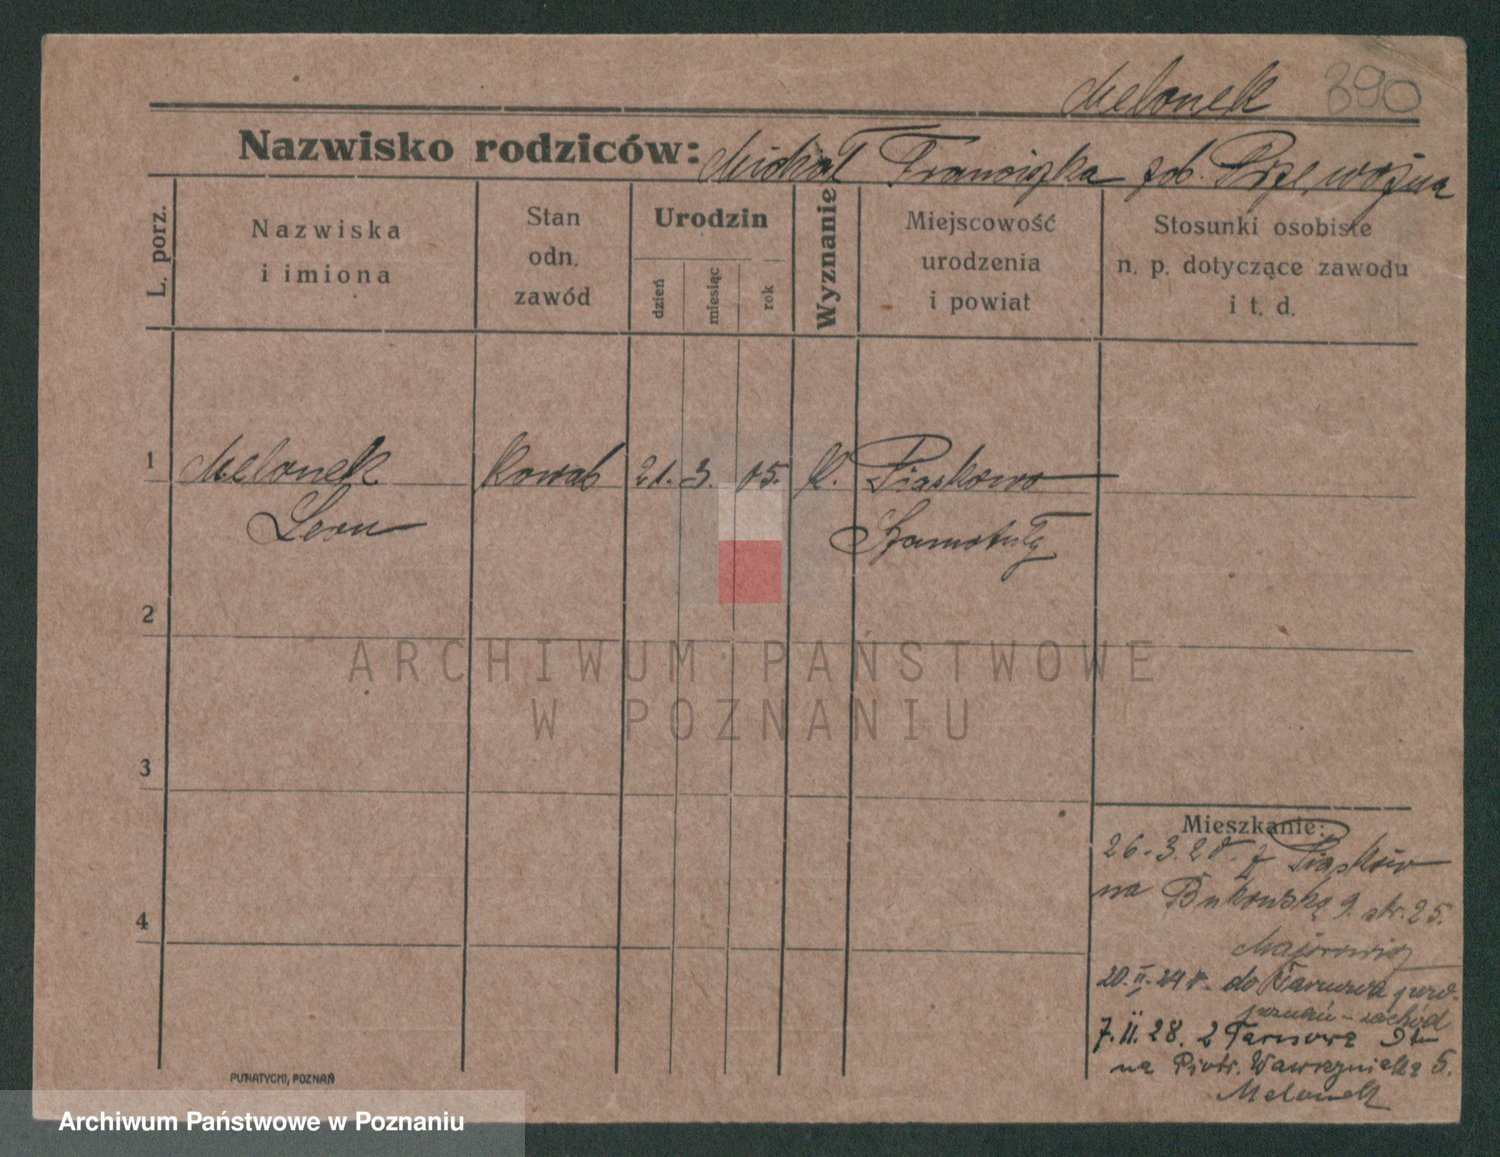 Melonek 390
Nazwisko rodziców: Michał Franciszka zd. Przewoźna
L. porz.
Nazwiska
i imiona
Stan
odn.
zawód
Urodzin
dzień
miesiąc
rok
Wyznanie
Miejscowość
urodzenia
i powiat
Stosunki osobiste
n. p. dotyczące zawodu
i t. d.
1 Melonek kowal 21. 3. 05. k. Piaskowo
Leon Szamotuły
2
3
4
Mieszkanie:
26.3.28. z Piasków
na Bukowską 9. str. 25.
20.II. do Tarnowa pow.
poznań-zachód
7.II.28. z Tarnowa
na Piotr. Wawrzyniaka 5.
Melonek
PUNATYCKI, POZNAŃ
ARCHIWUM PAŃSTWOWE
W POZNANIU
Archiwum Państwowe w Poznaniu